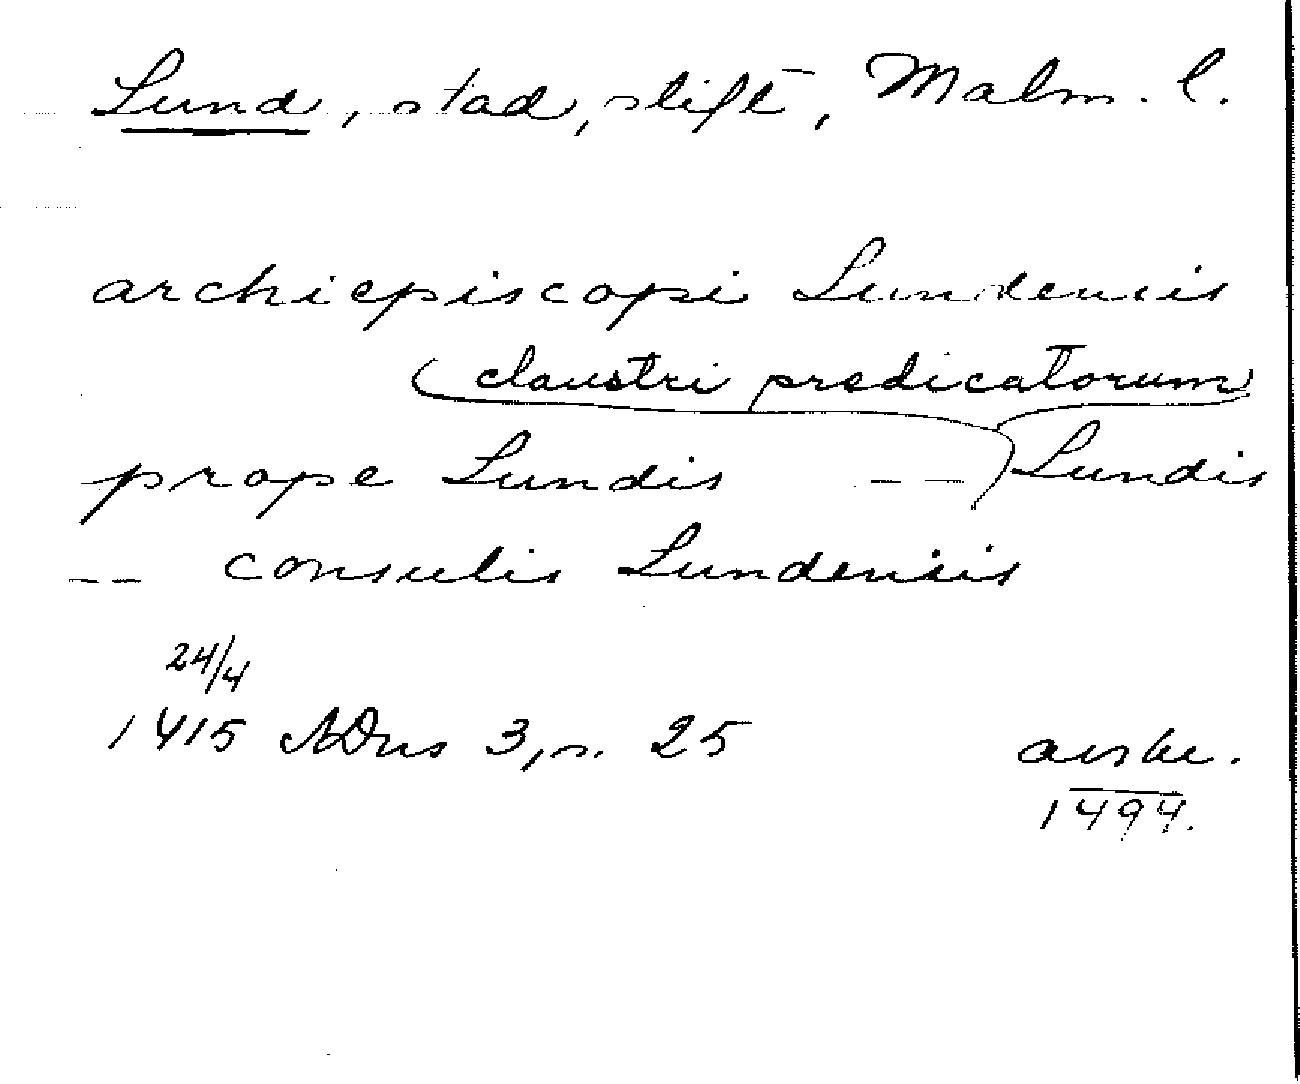 Lund, stad, stift, Malm. l.
archiepiscopi Lundensis
(claustri predicatorum)
prope Lundis -- Lundis
-- consulis Lundensis
24/4
1415 ADns 3, s. 25
avskr.
1494.